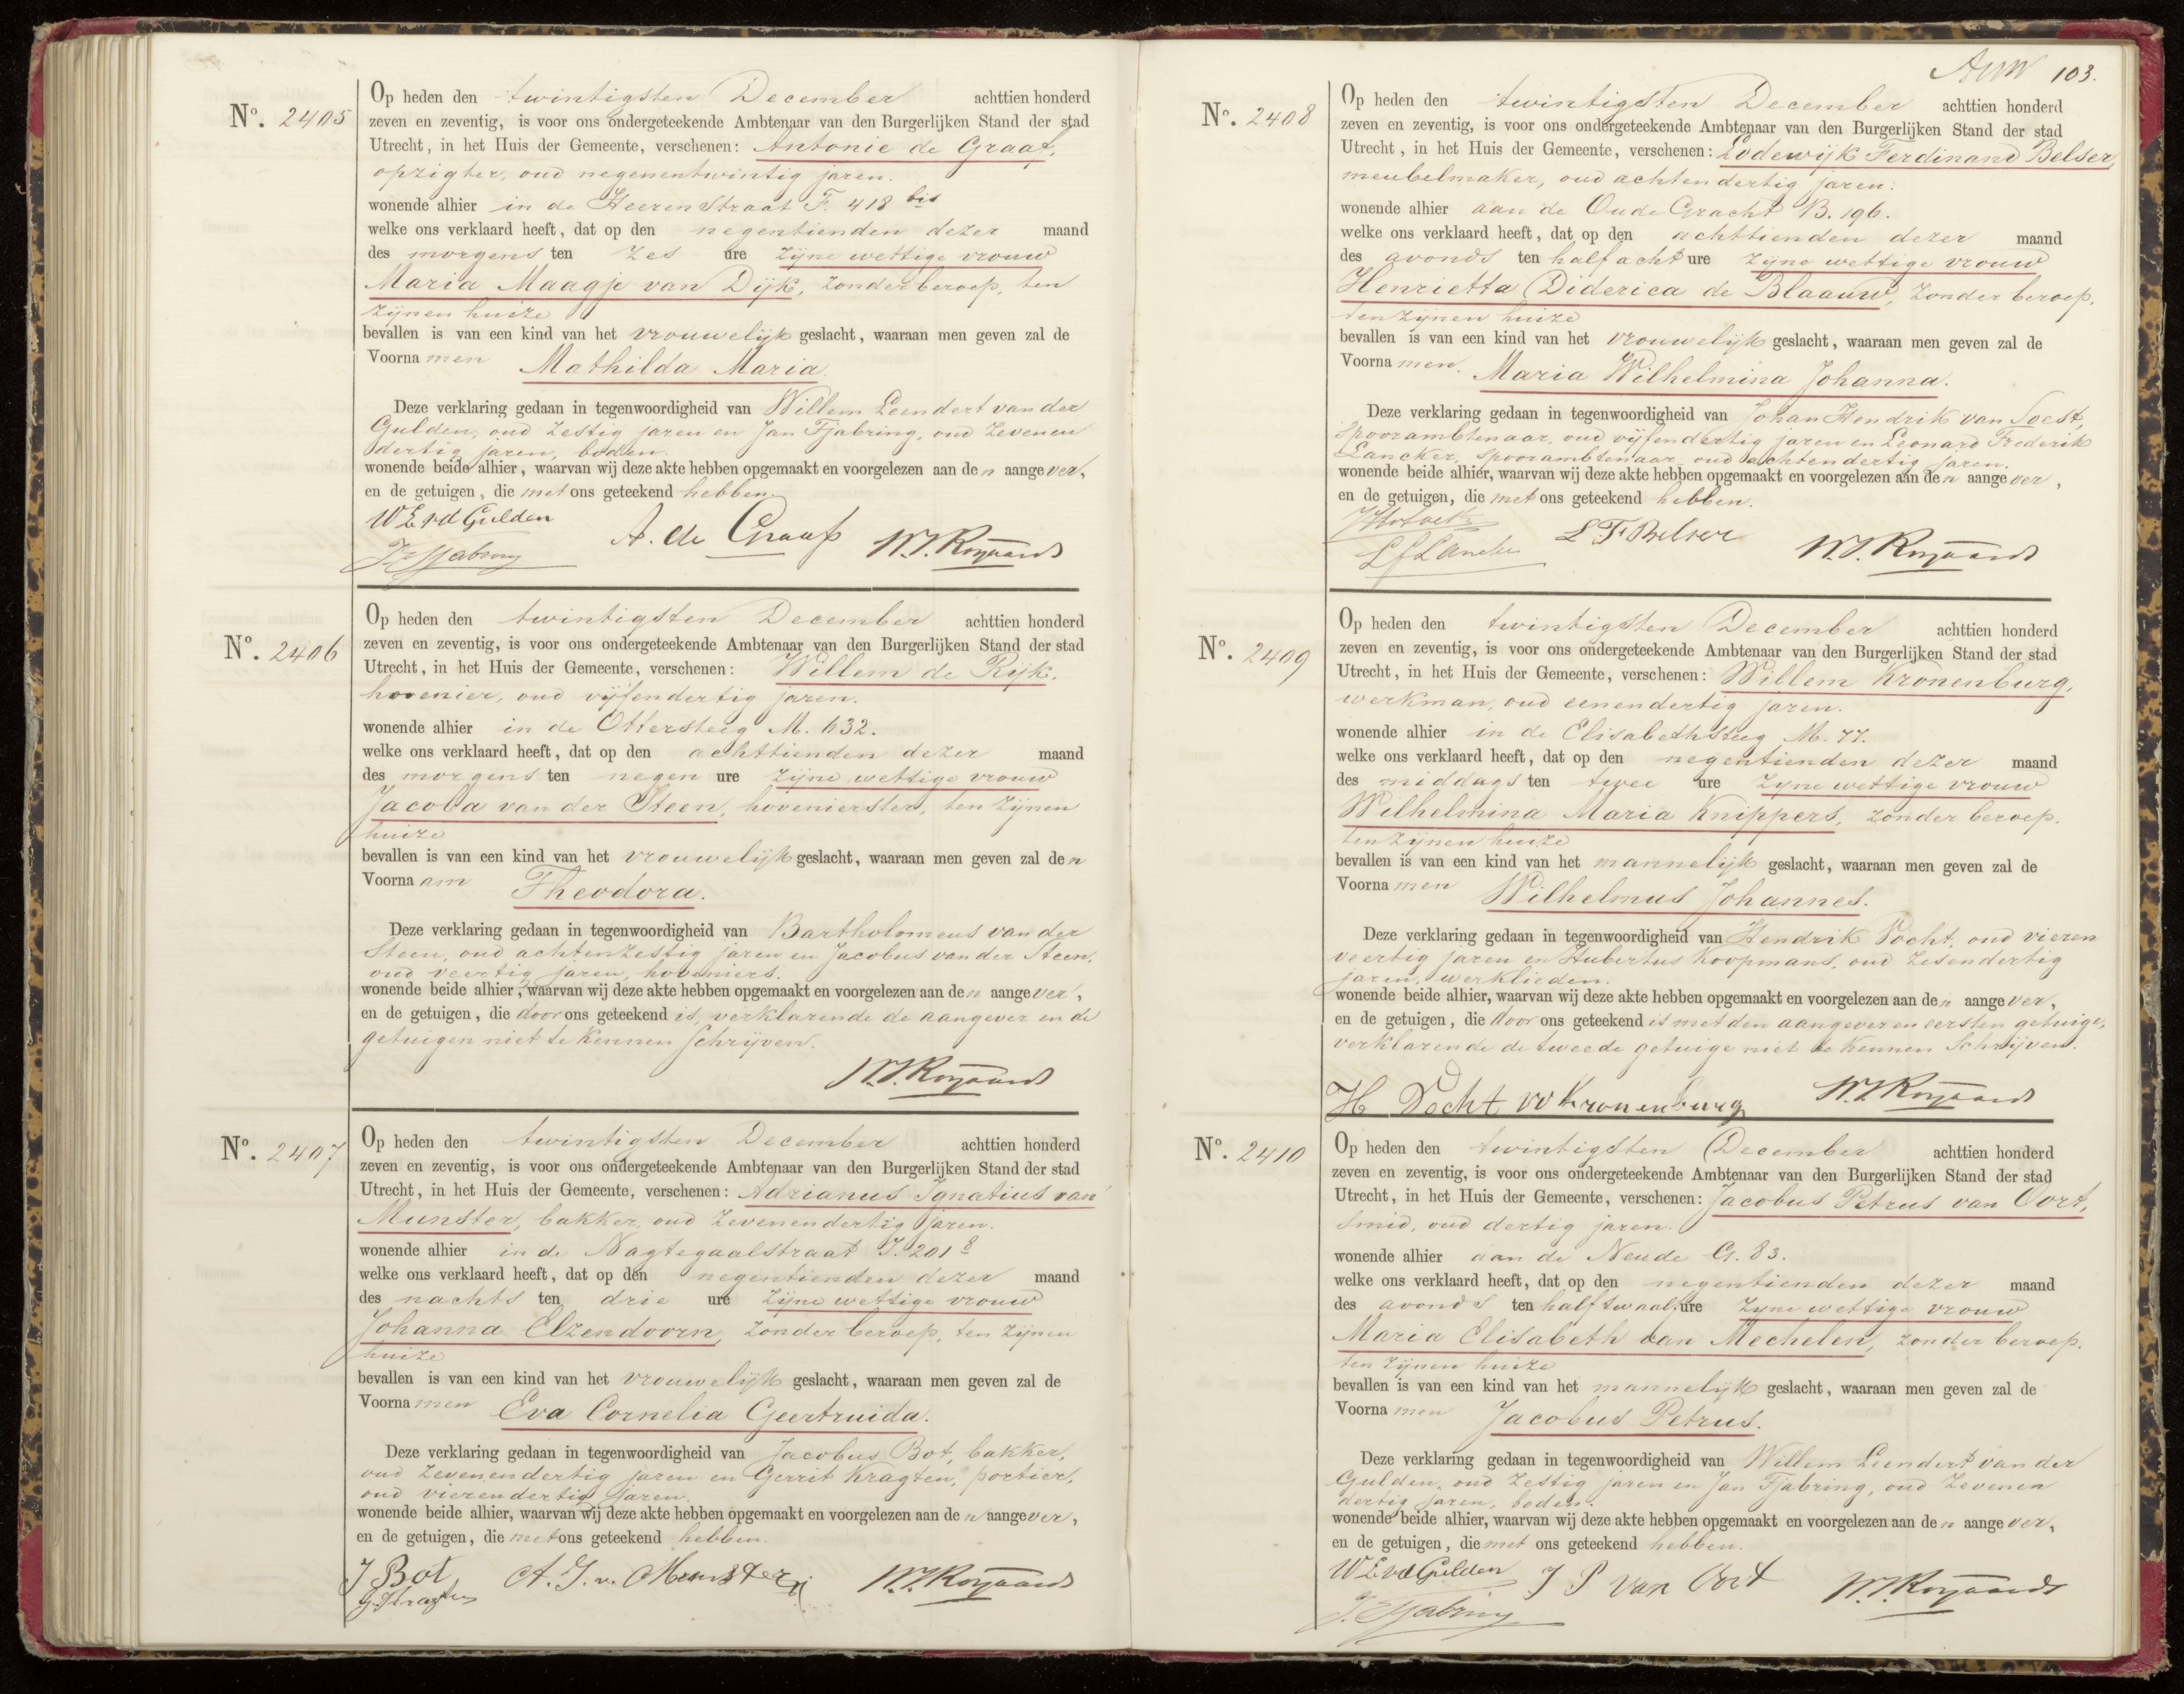 No. 2405
Op heden den twintigsten December achttien honderd
zeven en zeventig, is voor ons ondergeteekende Ambtenaar van den Burgerlijken Stand der stad
Utrecht, in het Huis der Gemeente, verschenen: Antonie de Graaf,
opzigter, oud negenentwintig jaren.
wonende alhier in de Heerenstraat F. 418 bis
welke ons verklaard heeft, dat op den negentienden dezer maand
des morgens ten zes ure zijne wettige vrouw
Maria Maagje van Dijk, zonder beroep, ten
zijnen huize
bevallen is van een kind van het vrouwelijk geslacht, waaraan men geven zal de
Voornamen Mathilda Maria.
Deze verklaring gedaan in tegenwoordigheid van Willem Leendert van der
Gulden, oud zestig jaren en Jan Tjabring, oud zevenen
dertig jaren, boden.
wonende beide alhier, waarvan wij deze akte hebben opgemaakt en voorgelezen aan den aangever,
en de getuigen, die met ons geteekend hebben.
W L vd Gulden
A. de Graaf
J. Tjabring
No. 2406
Op heden den twintigsten December achttien honderd
zeven en zeventig, is voor ons ondergeteekende Ambtenaar van den Burgerlijken Stand der stad
Utrecht, in het Huis der Gemeente, verschenen: Willem de Rijk,
hovenier, oud vijfendertig jaren.
wonende alhier in de Ottersteeg M. 632.
welke ons verklaard heeft, dat op den achttienden dezer maand
des morgens ten negen ure zijne wettige vrouw
Jacoba van der Steen, hovenierster, ten zijnen
huize
bevallen is van een kind van het vrouwelijk geslacht, waaraan men geven zal den
Voornaam Theodora.
Deze verklaring gedaan in tegenwoordigheid van Bartholomeus van der
Steen, oud achtenzestig jaren en Jacobus van der Steen,
oud veertig jaren, hoveniers.
wonende beide alhier, waarvan wij deze akte hebben opgemaakt en voorgelezen aan den aangever,
en de getuigen, die door ons geteekend is, verklarende de aangever en de
getuigen niet te kennen schrijven.
No. 2407
Op heden den twintigsten December achttien honderd
zeven en zeventig, is voor ons ondergeteekende Ambtenaar van den Burgerlijken Stand der stad
Utrecht, in het Huis der Gemeente, verschenen: Adrianus Ignatius van
Munster, bakker, oud zevenendertig jaren.
wonende alhier in de Nagtegaalstraat J. 201 8
welke ons verklaard heeft, dat op den negentienden dezer maand
des nachts ten drie ure zijne wettige vrouw
Johanna Elzendoorn, zonder beroep, ten zijnen
huize
bevallen is van een kind van het vrouwelijk geslacht, waaraan men geven zal de
Voornamen Eva Cornelia Geertruida.
Deze verklaring gedaan in tegenwoordigheid van Jacobus Bot, bakker,
oud zevenendertig jaren en Gerrit Kragten, portier,
oud vierendertig jaren.
wonende beide alhier, waarvan wij deze akte hebben opgemaakt en voorgelezen aan den aangever,
en de getuigen, die met ons geteekend hebben.
J Bot
A. I. v. Munster
G. Kragten
103.
No. 2408
Op heden den twintigsten December achttien honderd
zeven en zeventig, is voor ons ondergeteekende Ambtenaar van den Burgerlijken Stand der stad
Utrecht, in het Huis der Gemeente, verschenen: Lodewijk Ferdinand Belser,
meubelmaker, oud achtendertig jaren.
wonende alhier aan de Oude Gracht B. 196.
welke ons verklaard heeft, dat op den achttienden dezer maand
des avonds ten half acht ure zijne wettige vrouw
Henrietta Diderica de Blaauw, zonder beroep,
ten zijnen huize
bevallen is van een kind van het vrouwelijk geslacht, waaraan men geven zal de
Voornamen. Maria Wilhelmina Johanna.
Deze verklaring gedaan in tegenwoordigheid van Johan Hendrik van Soest,
spoorambtenaar, oud vijfendertig jaren en Leonard Frederik
Lancker, spoorambtenaar, oud achtendertig jaren.
wonende beide alhier, waarvan wij deze akte hebben opgemaakt en voorgelezen aan den aangever,
en de getuigen, die met ons geteekend hebben.
L F Belser
No. 2409
Op heden den twintigsten December achttien honderd
zeven en zeventig, is voor ons ondergeteekende Ambtenaar van den Burgerlijken Stand der stad
Utrecht, in het Huis der Gemeente, verschenen: Willem Kronenburg,
werkman, oud eenendertig jaren.
wonende alhier in de Elisabethsteeg M. 77.
welke ons verklaard heeft, dat op den negentienden dezer maand
des middags ten twee ure zijne wettige vrouw
Wilhelmina Maria Knippers, zonder beroep.
ten zijnen huize
bevallen is van een kind van het mannelijk geslacht, waaraan men geven zal de
Voornamen Wilhelmus Johannes.
Deze verklaring gedaan in tegenwoordigheid van Hendrik Docht, oud vieren
veertig jaren en Hubertus Koopmans, oud zesendertig
jaren, werklieden.
wonende beide alhier, waarvan wij deze akte hebben opgemaakt en voorgelezen aan den aangever,
en de getuigen, die door ons geteekend is met den aangever en eersten getuige,
verklarende de tweede getuige niet te kennen schrijven.
H Docht W Kronenburg
No. 2410
Op heden den twintigsten December achttien honderd
zeven en zeventig, is voor ons ondergeteekende Ambtenaar van den Burgerlijken Stand der stad
Utrecht, in het Huis der Gemeente, verschenen: Jacobus Petrus van Oort,
smid, oud dertig jaren.
wonende alhier aan de Neude G. 83.
welke ons verklaard heeft, dat op den negentienden dezer maand
des avonds ten half twaalf ure zijne wettige vrouw
Maria Elisabeth van Mechelen, zonder beroep,
ten zijnen huize
bevallen is van een kind van het mannelijk geslacht, waaraan men geven zal de
Voornamen Jacobus Petrus.
Deze verklaring gedaan in tegenwoordigheid van Willem Leendert van der
Gulden, oud zestig jaren en Jan Tjabring, oud zevenen
dertig jaren, boden.
wonende beide alhier, waarvan wij deze akte hebben opgemaakt en voorgelezen aan den aangever,
en de getuigen, die met ons geteekend hebben.
W L vd Gulden
J P van Oort
J. Tjabring